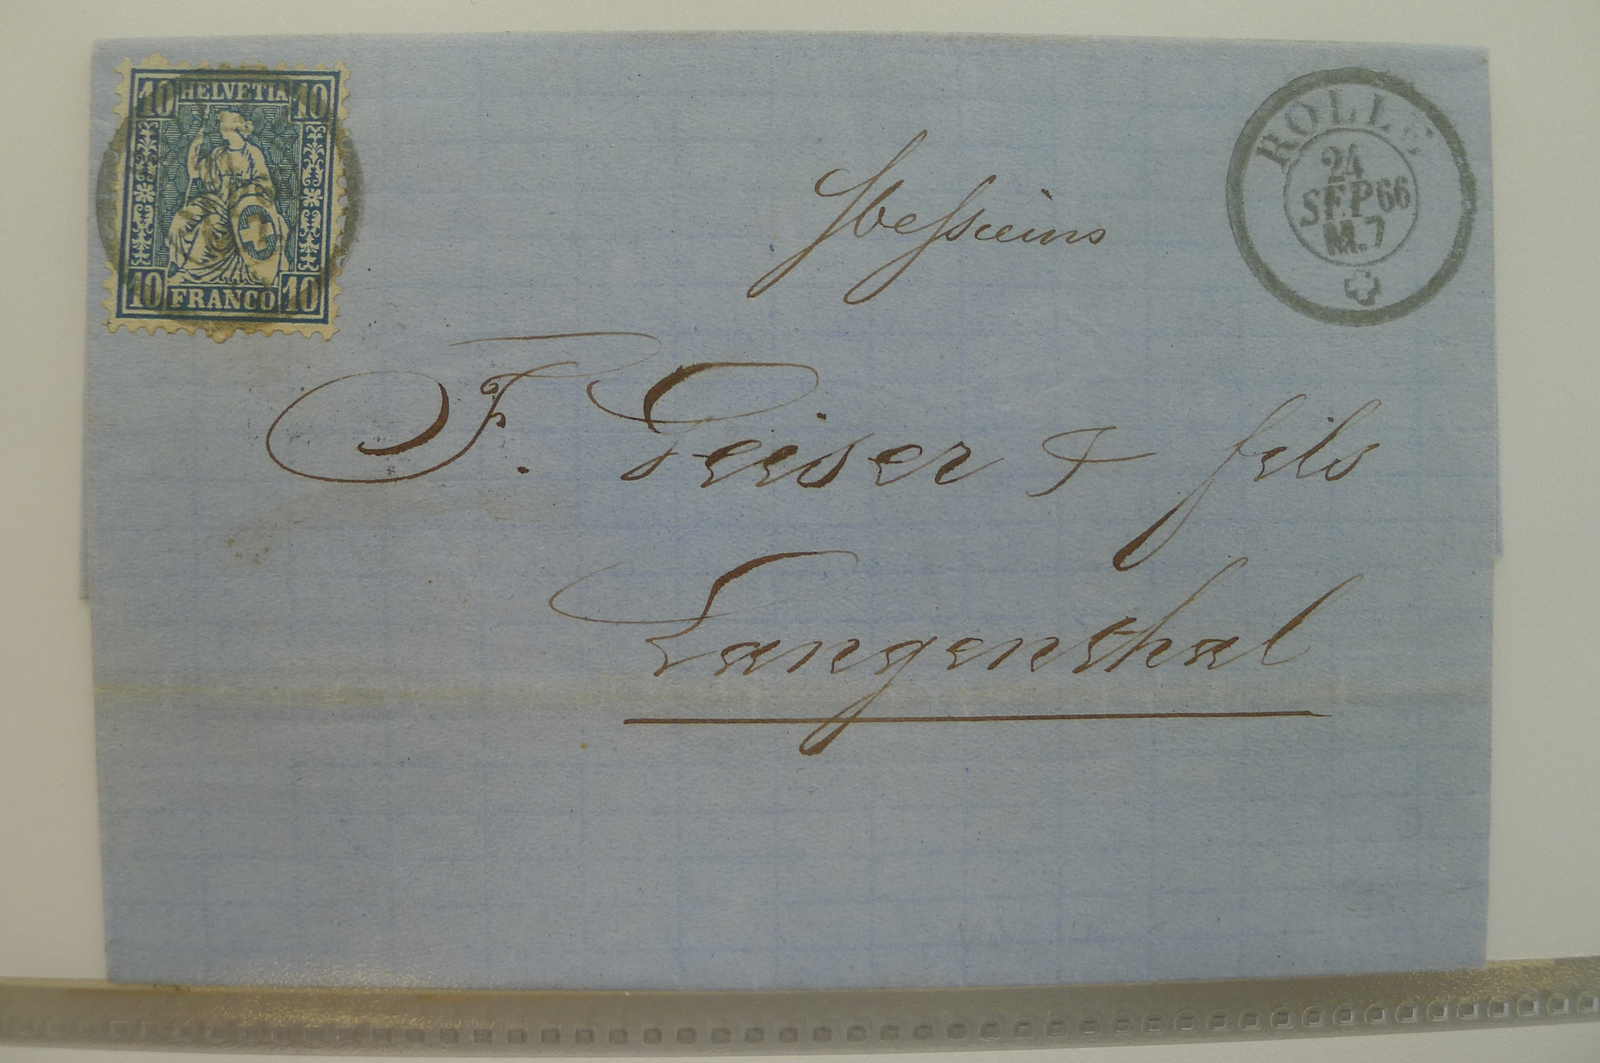 10 HELVETIA 10
10 FRANCO 10
ROLLE
24
SEP 66
M.7
Messieurs
F. Geiser & fils
Langenthal